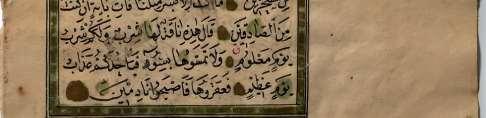 ما انت الا بشر مثلنا فات باية ان كنت
مِنَ الصَّادِقِينَ قَالَ هٰذِهِ نَاقَةٌ لَهَا شِرْبٌ وَلَكُمْ شِرْبُ
يَوْمٍ مَعْلُومٍ وَلَا تَمَسُّوهَا بِسُوءٍ فَيَأْخُذَكُمْ عَذَابُ
يَوْمٍ عَظِيمٍ فَعَقَرُوهَا فَأَصْبَحُوا نَادِمِينَ